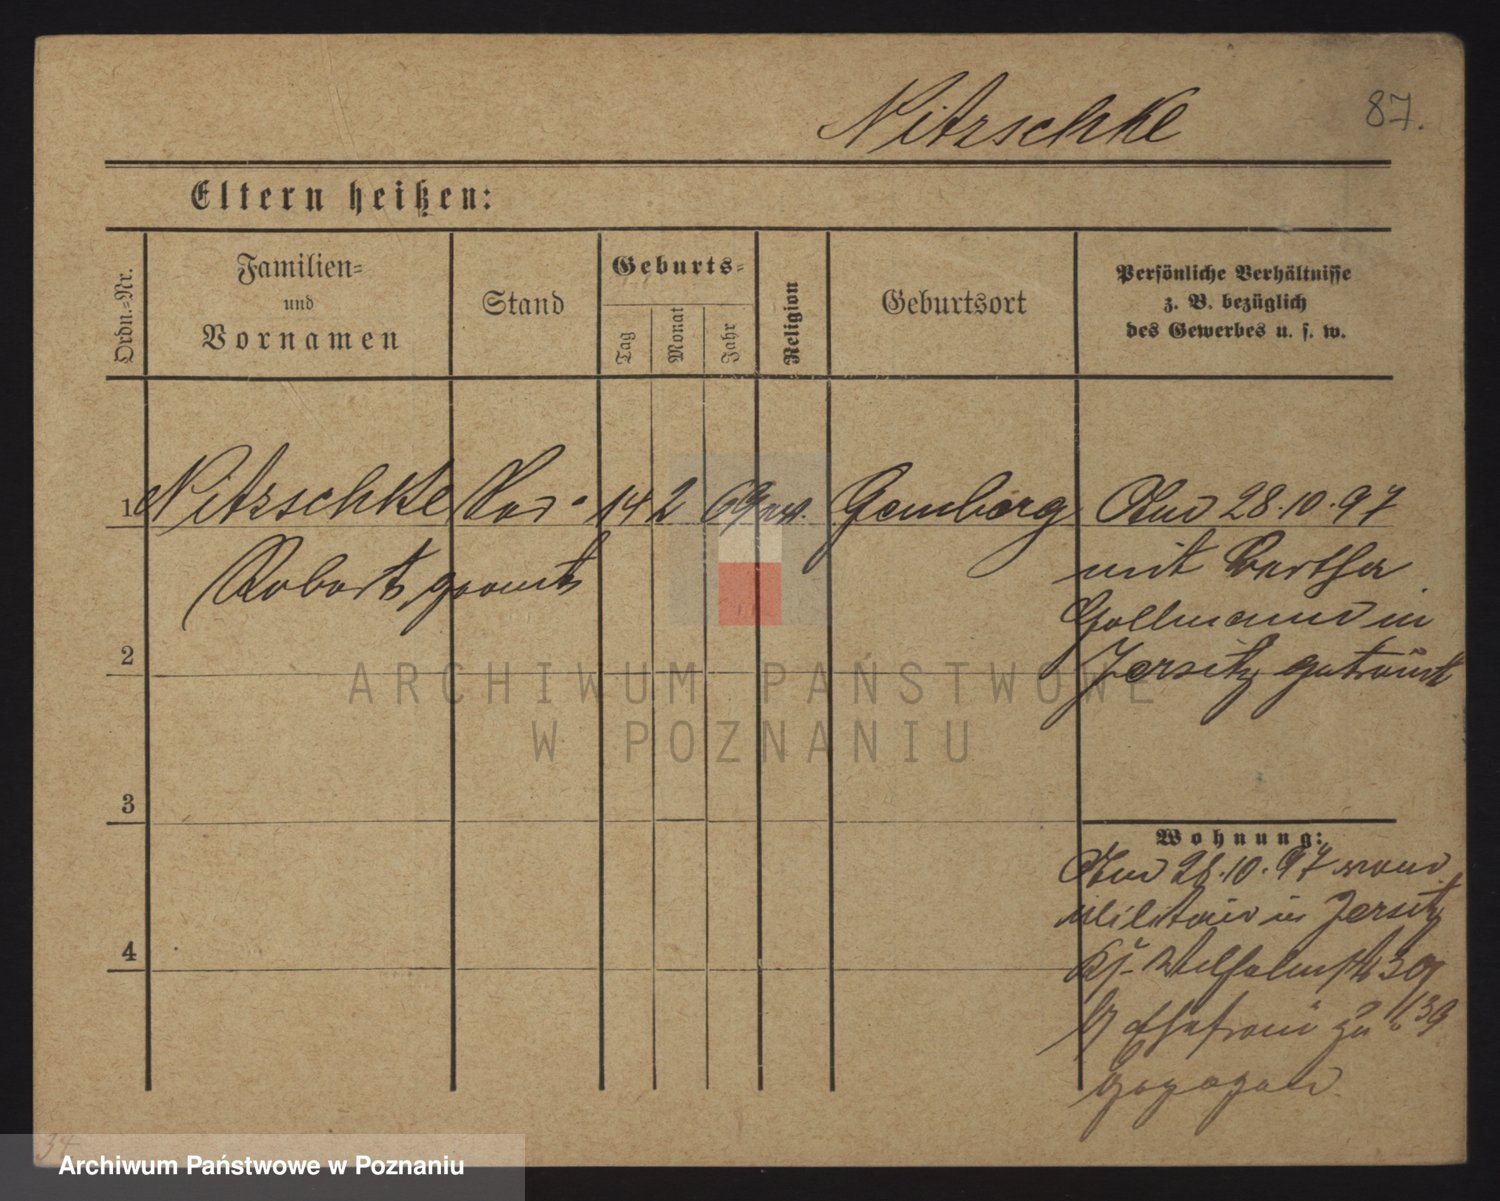 Nitzschke 87.
Eltern heißen:
Ordn.=Nr.
Familien=
und
Vornamen
Stand
Geburts=
Tag
Monat
Jahr
Religion
Geburtsort
Persönliche Verhältnisse
z. B. bezüglich
des Gewerbes u. s. w.
1 Nitzschke 14 2 69 ev. Gembarg Am 28.10.97
Robert, mit Bertha
Gollmann in
2 Jersitz getraut
ARCHIWUM PAŃSTWOWE
W POZNANIU
3
Wohnung:
Am 28.10.97 vom
Militair in Jersitz
4 Ks. Wilhelmstr 39
Ehefrau zu 39
gezogen
34
Archiwum Państwowe w Poznaniu